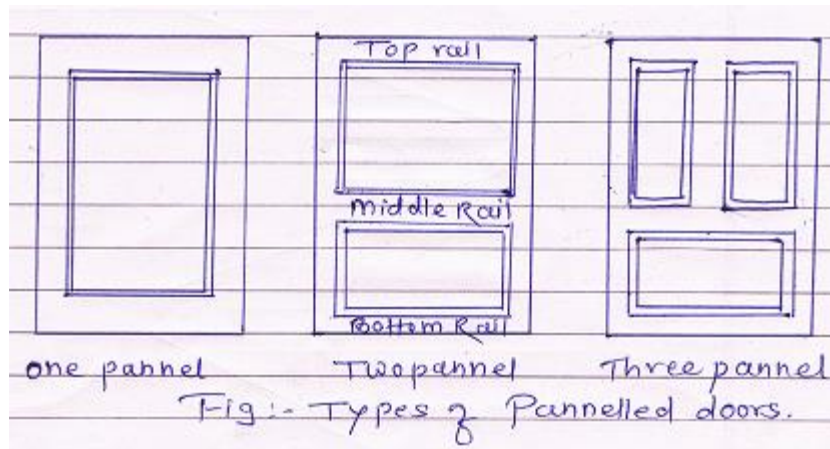 Top rail
Middle Rail
Bottom Rail
one pannel
Two pannel
Three pannel
Fig:- Types of Pannelled doors.